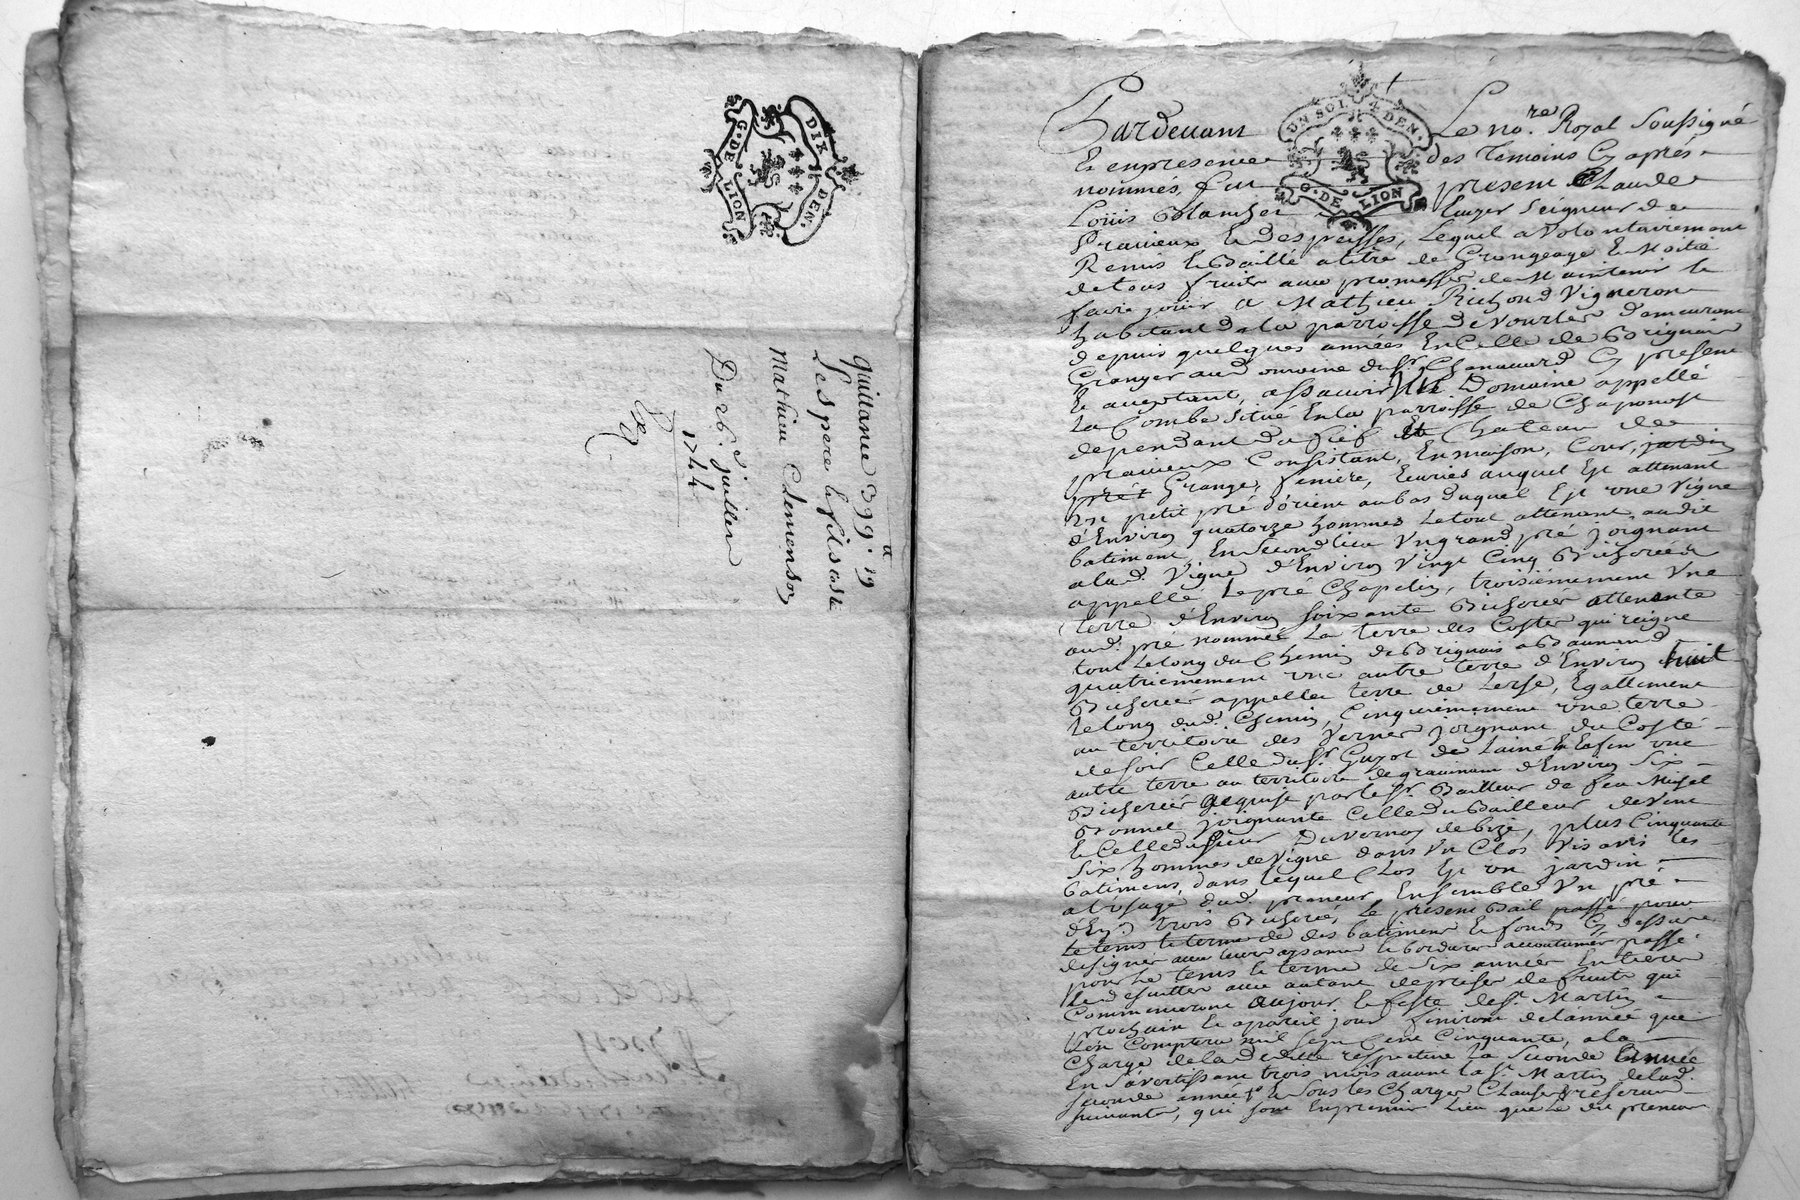 G. DE LION
DIX DEN.
quittance 399# 19
Les pere & fils
Mathieu Clemenson
Du 26e juillet
1744
UN SOL 4 DEN.
G. DE LION
Pardevant Le nore Royal soussigné
Et en presence des Temoins Cy aprés
nommés, fut present Claude
Loüis Blanchet Ecuyer Seigneur de
Pravieux, Lequel a volontairement
Remis Et Baillé a titre de Grangeage Et Moitié
de tous fruits avec promesse de Maintenir Et
faire joüir a Mathieu Richond Vigneron
habitant de la parroisse de vourles demeurant
depuis quelques années En Celle de Brignais
Granger au domaine du Sr. Chanavard Cy present
Et acceptant, assavoir Un Domaine appellé
La Combe Situé En la parroisse de Chaponost
dependant du fief Et Chateau de
pravieux Consistant, En maison, Cour, jardin
prés Grange, feniere, Ecuries auquel Est attenant
Un petit pré d'orient au bas duquel Est une Vigne
d'Environ quatorze hommes Le tout attenant audit
batiment, En Second lieu Un grand pré joignant
a lad. Vigne d'Environ Vingt Cinq Bicherées
appellé Le pré Chapelin, troisiémement Une
terre d'Environ soixante Bicherées attenante
aud. pré nommée La terre des Costes qui reigne
tout Le long du Chemin de Brignais a
quatriemement une autre terre d'Environ huit
Bicherées appellée terre de Lerse, Egallement
Le long dud. Chemin, Cinquiémement une terre
au territoire des Vernes joignant du Costé
de soir Celle du Sr. Guyot de Laine Et Enfin une
autre terre au territoire de d'Environ Six
Bicherées acquise par le Sr. Bailleur de feu Michel
Bonnet joignante Celle du Bailleur de vent
Et Celle du Sieur Duvernay de bize, plus Cinquante
Six hommes de Vigne dans Un Clos Vis avis les
batimens, dans lequel Clos Est un jardin
a l'Usage dud. preneur Ensemble Un pré
d'En.on trois Bicherées, Le present Bail passé pour
Le tems Et terme de des batimens Et fonds Cy dessus
designés avec leurs aysances Et bordures accoutumées passé
pour Le tems Et terme de six années Entieres
Et de suittes avec autant de prises de fruits qui
Commenceront aujour Et feste de St. Martin
prochain Et apareil jour finiront de l'année que
L'on Comptera mil Sept Cent Cinquante, a la
Charge de la dedite respective La Seconde année
En S'avertissant trois mois avant la St. Martin de lad.
seconde année Et Sous Les Charges Clauses & reserves
suivantes, qui sont En premier Lieu que Le dit preneur